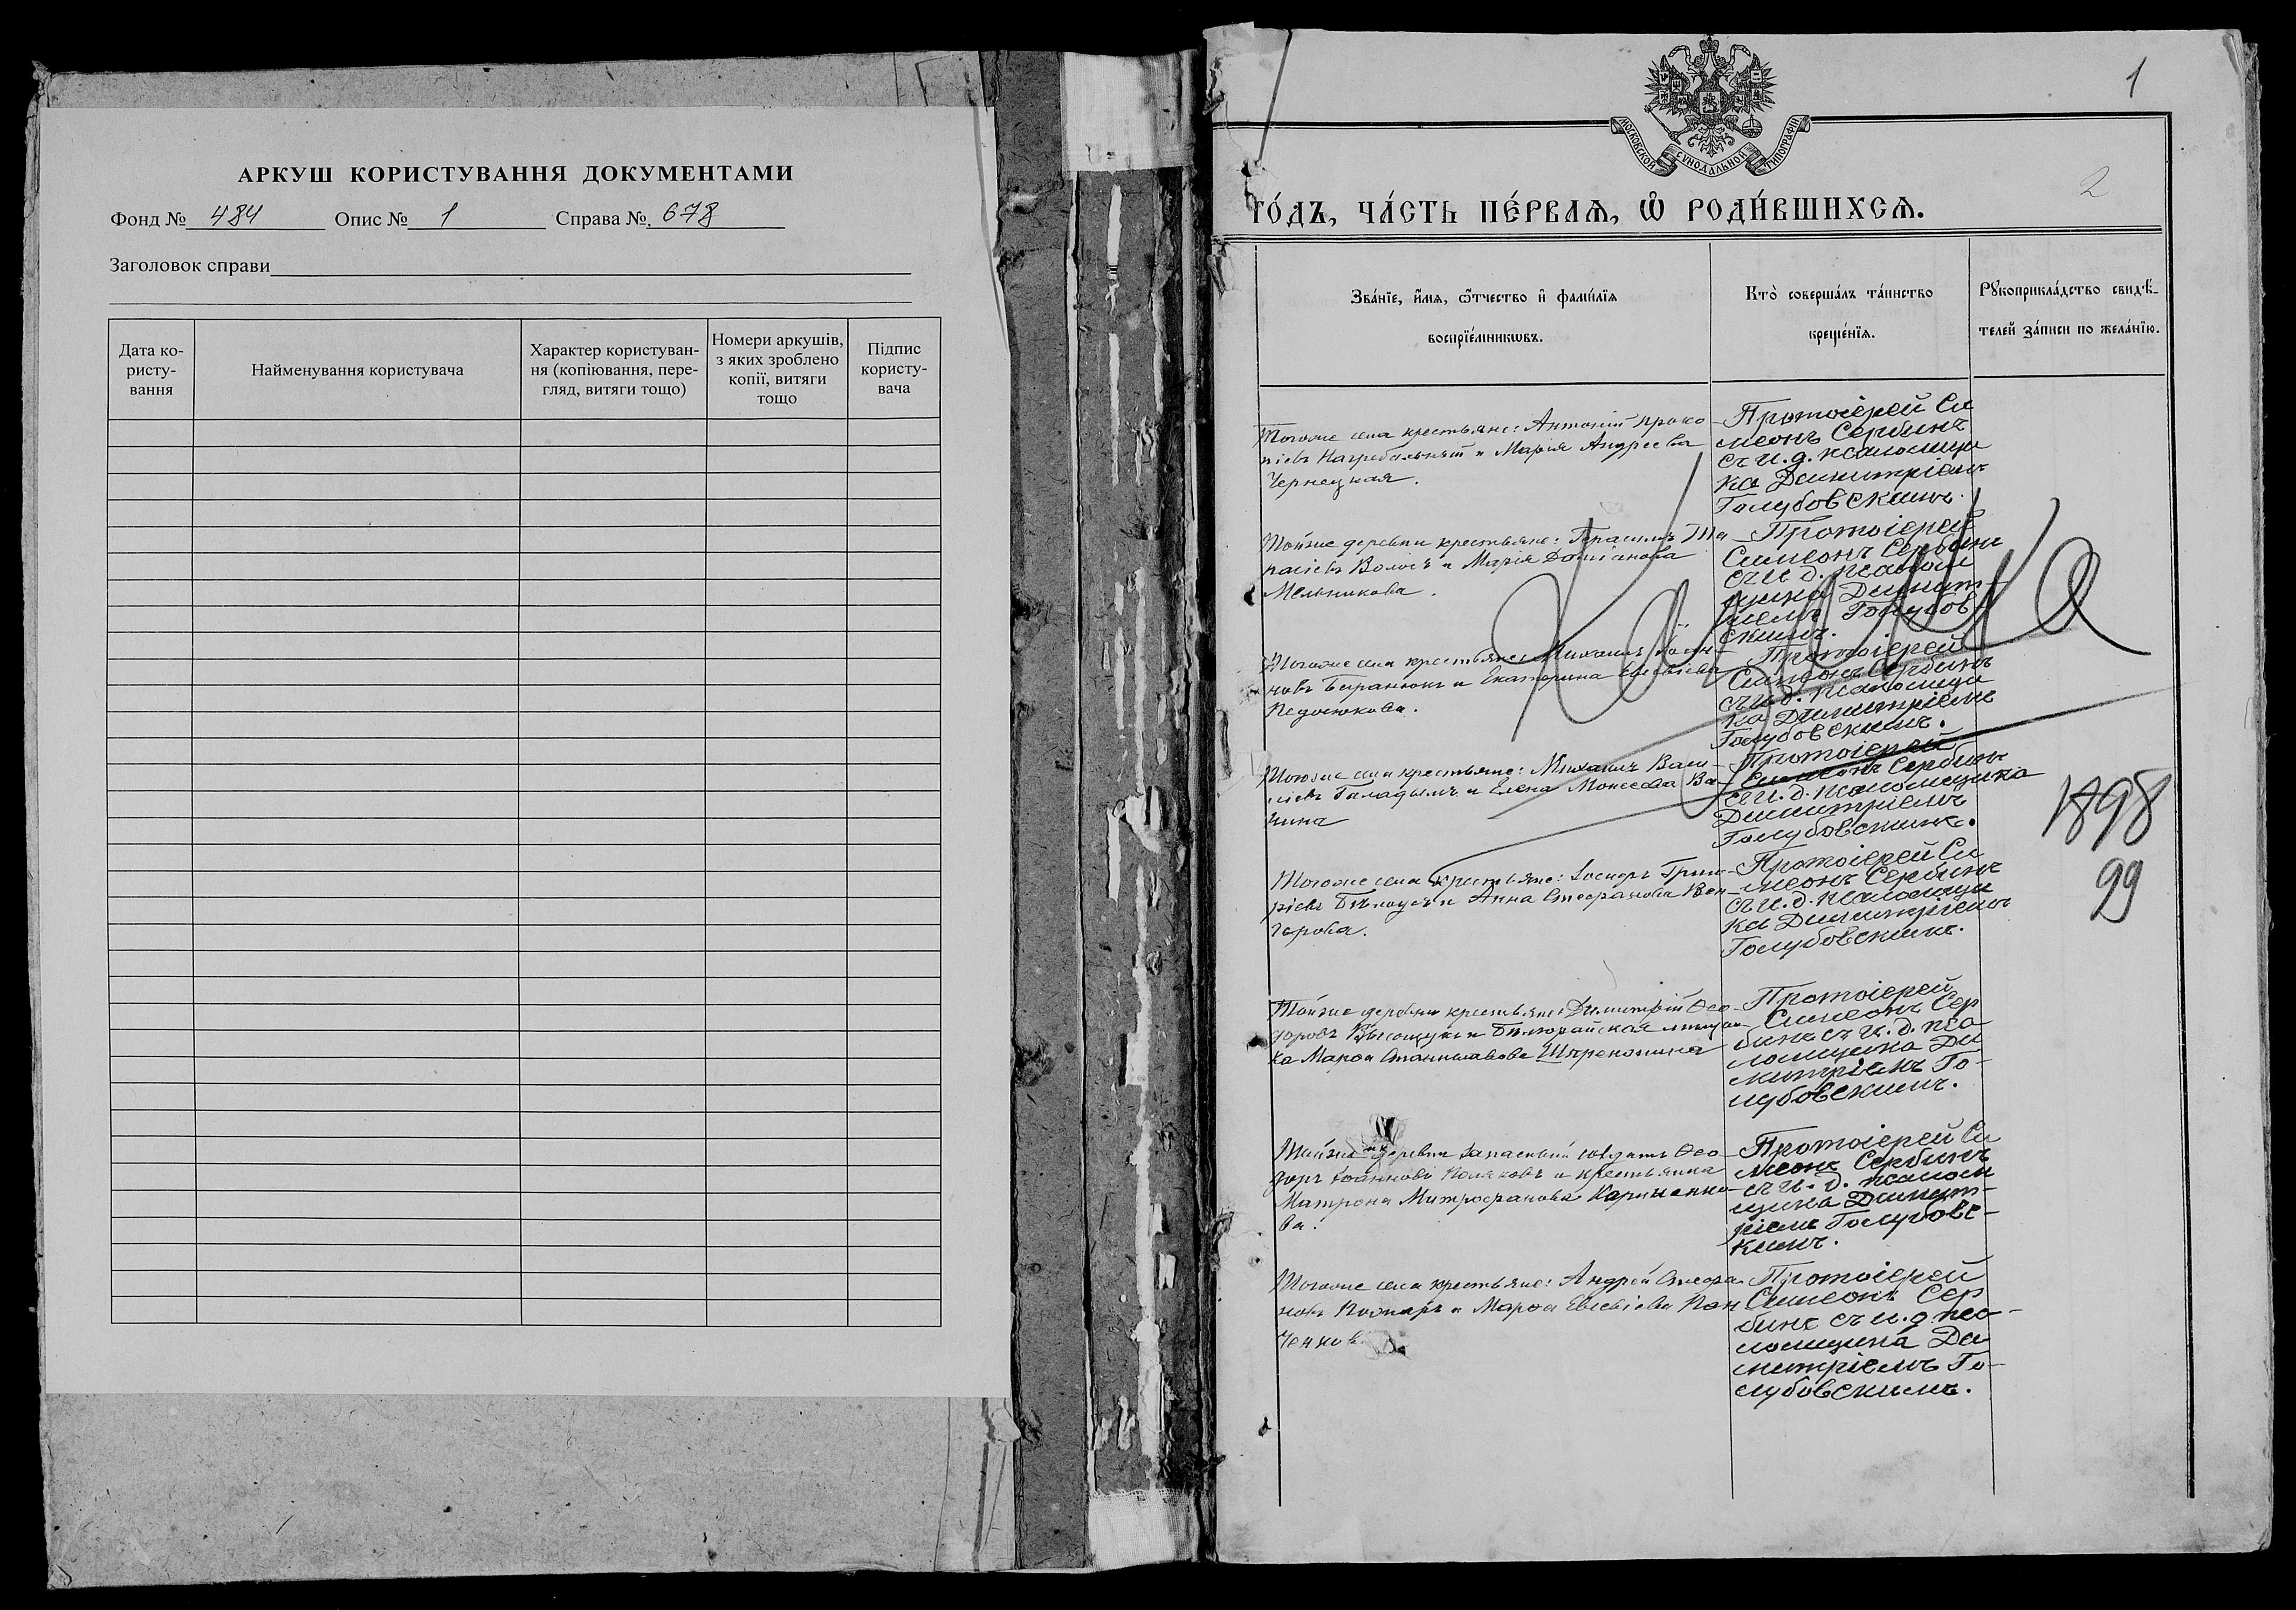 АРКУШ КОРИСТУВАННЯ ДОКУМЕНТАМИ
Фонд № 484 Опис № 1 Справа № 678
Заголовок справи
Дата ко-
ристу-
вання
Найменування користувача
Характер користуван-
ня (копіювання, пере-
гляд, витяги тощо)
Номери аркушів,
з яких зроблено
копії, витяги
тощо
Підпис
користу-
вача
1
МОСКОВСКОЙ СУНОДАЛЬНОЙ ТИПОГРАФІИ
2
ГО́ДЪ, ЧА́СТЬ ПЕ́РВАѦ, Ѡ РОДИ́ВШИХСѦ.
Зва́нїе, и́мѧ, ѻ́тчество и фами́лїѧ
воспрїе́мникѡвъ.
Кто̀ соверша́лъ та́инство
креще́нїѧ.
Рꙋкоприкла́дство свидѣ́-
телей за́писи по жела́нїю.
Тогоже села крестьяне: Антоній Проко
піевъ Нагребельный и Марія Андреева
Чернецкая.
Протоіерей Си
меонъ Сербинъ
съ и. д. псаломщи
ка Димитріемъ
Голубовскимъ.
Тойже деревни крестьяне: Герасимъ Та
расіевъ Волосъ и Марія Доміанова
Мельникова.
Протоіерей
Симеонъ Сербинъ
съ и. д. псалом
щика Димит-
ріемъ Голубов
скимъ.
Тогоже села крестьяне: Михаилъ
новъ Баранюкъ и Екатерина Евсевіева
Недосюкова.
Протоіерей
Симеонъ Сербинъ
съ и. д. псаломщи
ка Димитріемъ
Голубовскимъ.
Тогоже села крестьяне: Михаилъ Васи-
ліевъ Галадымъ и Елена Моисеева Ва-
нина
Протоіерей
Симеонъ Сербинъ
съ и. д. псаломщика
Димитріемъ
Голубовскимъ.
1898
99
Тогоже села крестьяне: Іосифъ Григо-
ріевъ Бѣлоусъ и Анна Стефанова Вен-
герова.
Протоіерей Си
меонъ Сербинъ
съ и. д. псаломщи
ка Димитріемъ
Голубовскимъ.
Тойже деревни крестьяне: Димитрій Ѳео
доровъ Высоцкій и мѣщан
ка Марѳа Станиславова
Протоіерей
Симеонъ Сер
бинъ съ и. д. пса
ломщика Ди
митріемъ Го-
лубовскимъ.
Тойже деревни запасный солдатъ Ѳео
доръ Іоанновъ Поляковъ и крестьянка
Матрона Митрофанова
ва.
Протоіерей Си
меонъ Сербинъ
съ и. д. псалом
щика Димит-
ріемъ Голубовс-
кимъ.
Тогоже села крестьяне: Андрей Стефа
новъ и Марѳа Евсевіева Пан
ченков
Протоіерей
Симеонъ Сер
бинъ съ и. д. пса-
ломщика Ди
митріемъ Го-
лубовскимъ.